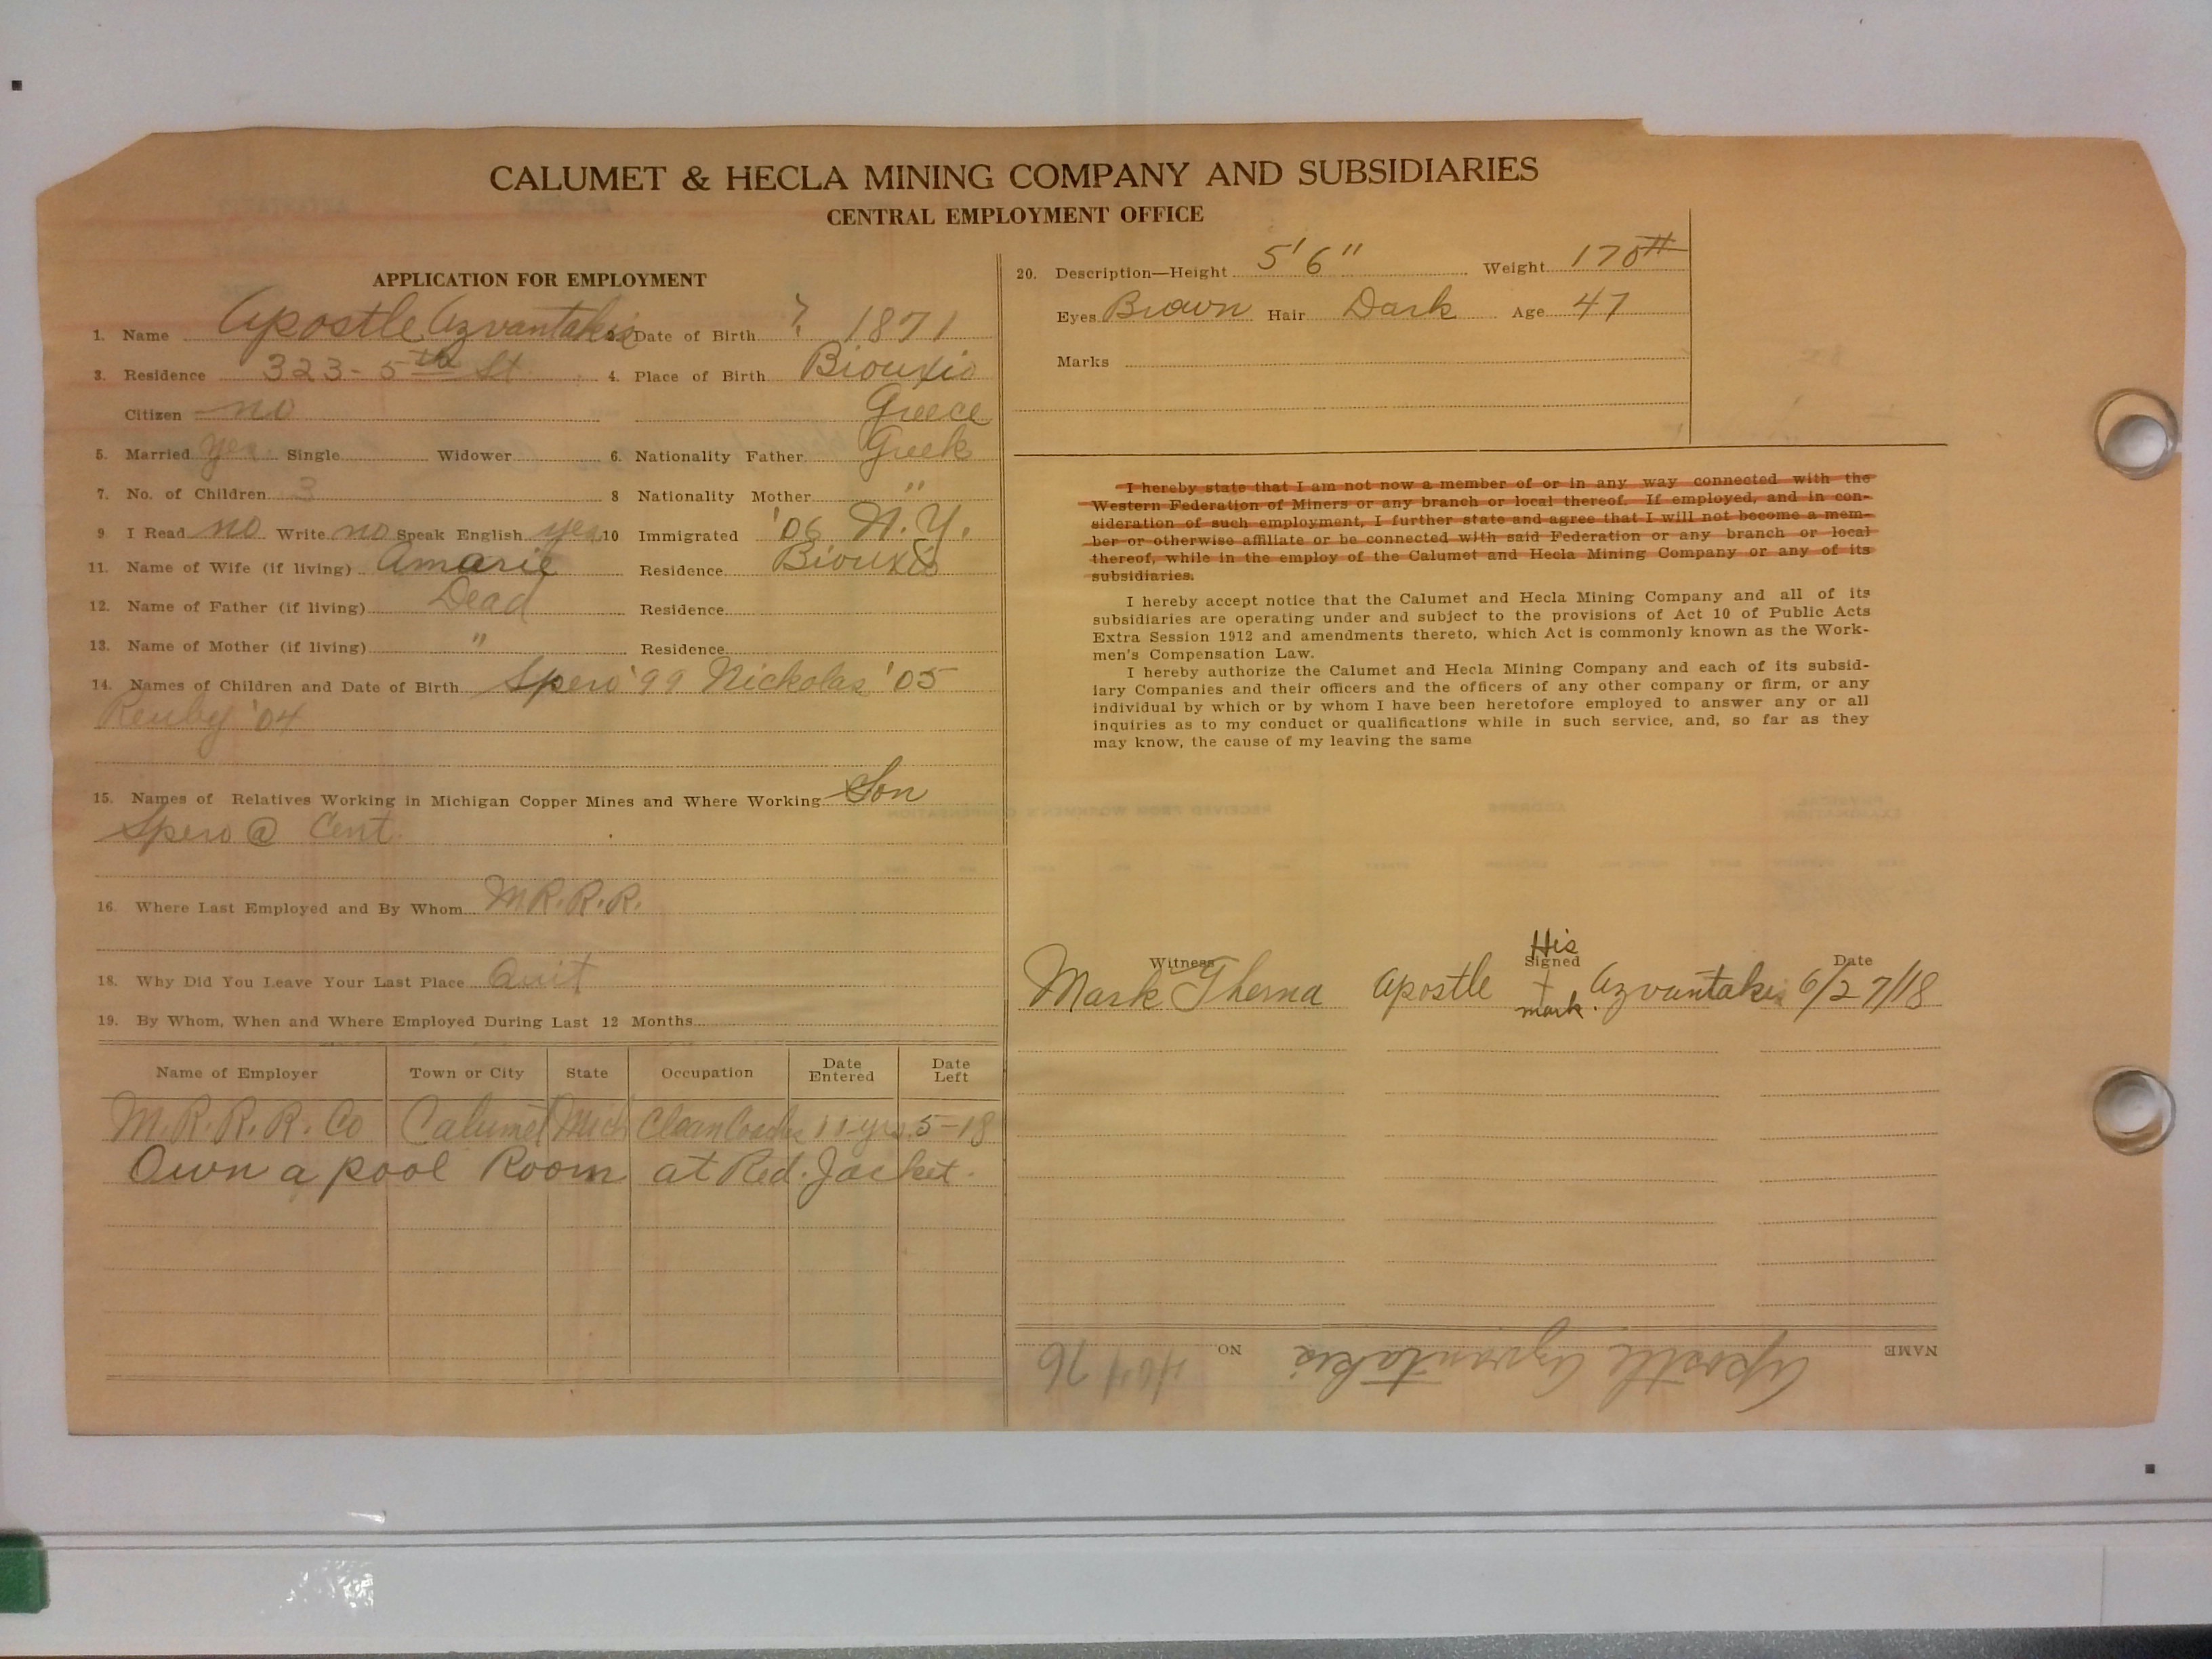 CALUMET & HECLA MINING COMPANY AND SUBSIDIARIES
CENTRAL EMPLOYMENT OFFICE
APPLICATION FOR EMPLOYMENT
1. Name Apostle Azvantakis 2. Date of Birth ? 1871
3. Residence 323-5th St 4. Place of Birth Biouxio
Citizen no Greece
5. Married yes Single Widower 6. Nationality Father Greek
7. No. of Children 3 8 Nationality Mother "
9 I Read no Write no Speak English yes 10 Immigrated '06 N.Y.
11. Name of Wife (if living) Amarie Residence Biouxio
12. Name of Father (if living) Dead Residence
13. Name of Mother (if living) " Residence
14. Names of Children and Date of Birth Spero '99 Nickolas '05
'04
15. Names of Relatives Working in Michigan Copper Mines and Where Working Son
Spero @ Cent.
16. Where Last Employed and By Whom M.R.R.R.
18. Why Did You Leave Your Last Place Quit
19. By Whom, When and Where Employed During Last 12 Months
Name of Employer Town or City State Occupation Date Entered Date Left
M.R.R.R. Co Calumet Mich Clean Coaches 11 yrs 5-18
Own a pool Room at Red Jacket.
20. Description—Height 5'6" Weight 170#
Eyes Brown Hair Dark Age 47
Marks
I hereby state that I am not now a member of or in any way connected with the
Western Federation of Miners or any branch or local thereof. If employed, and in con-
sideration of such employment, I further state and agree that I will not become a mem-
ber or otherwise affiliate or be connected with said Federation or any branch or local
thereof, while in the employ of the Calumet and Hecla Mining Company or any of its
subsidiaries.
I hereby accept notice that the Calumet and Hecla Mining Company and all of its
subsidiaries are operating under and subject to the provisions of Act 10 of Public Acts
Extra Session 1912 and amendments thereto, which Act is commonly known as the Work-
men's Compensation Law.
I hereby authorize the Calumet and Hecla Mining Company and each of its subsid-
iary Companies and their officers and the officers of any other company or firm, or any
individual by which or by whom I have been heretofore employed to answer any or all
inquiries as to my conduct or qualifications while in such service, and, so far as they
may know, the cause of my leaving the same
Witness His Signed Date
Mark Therna Apostle + mark. Azvantakis 6/27/18
NAME Apostle Azvantakis NO